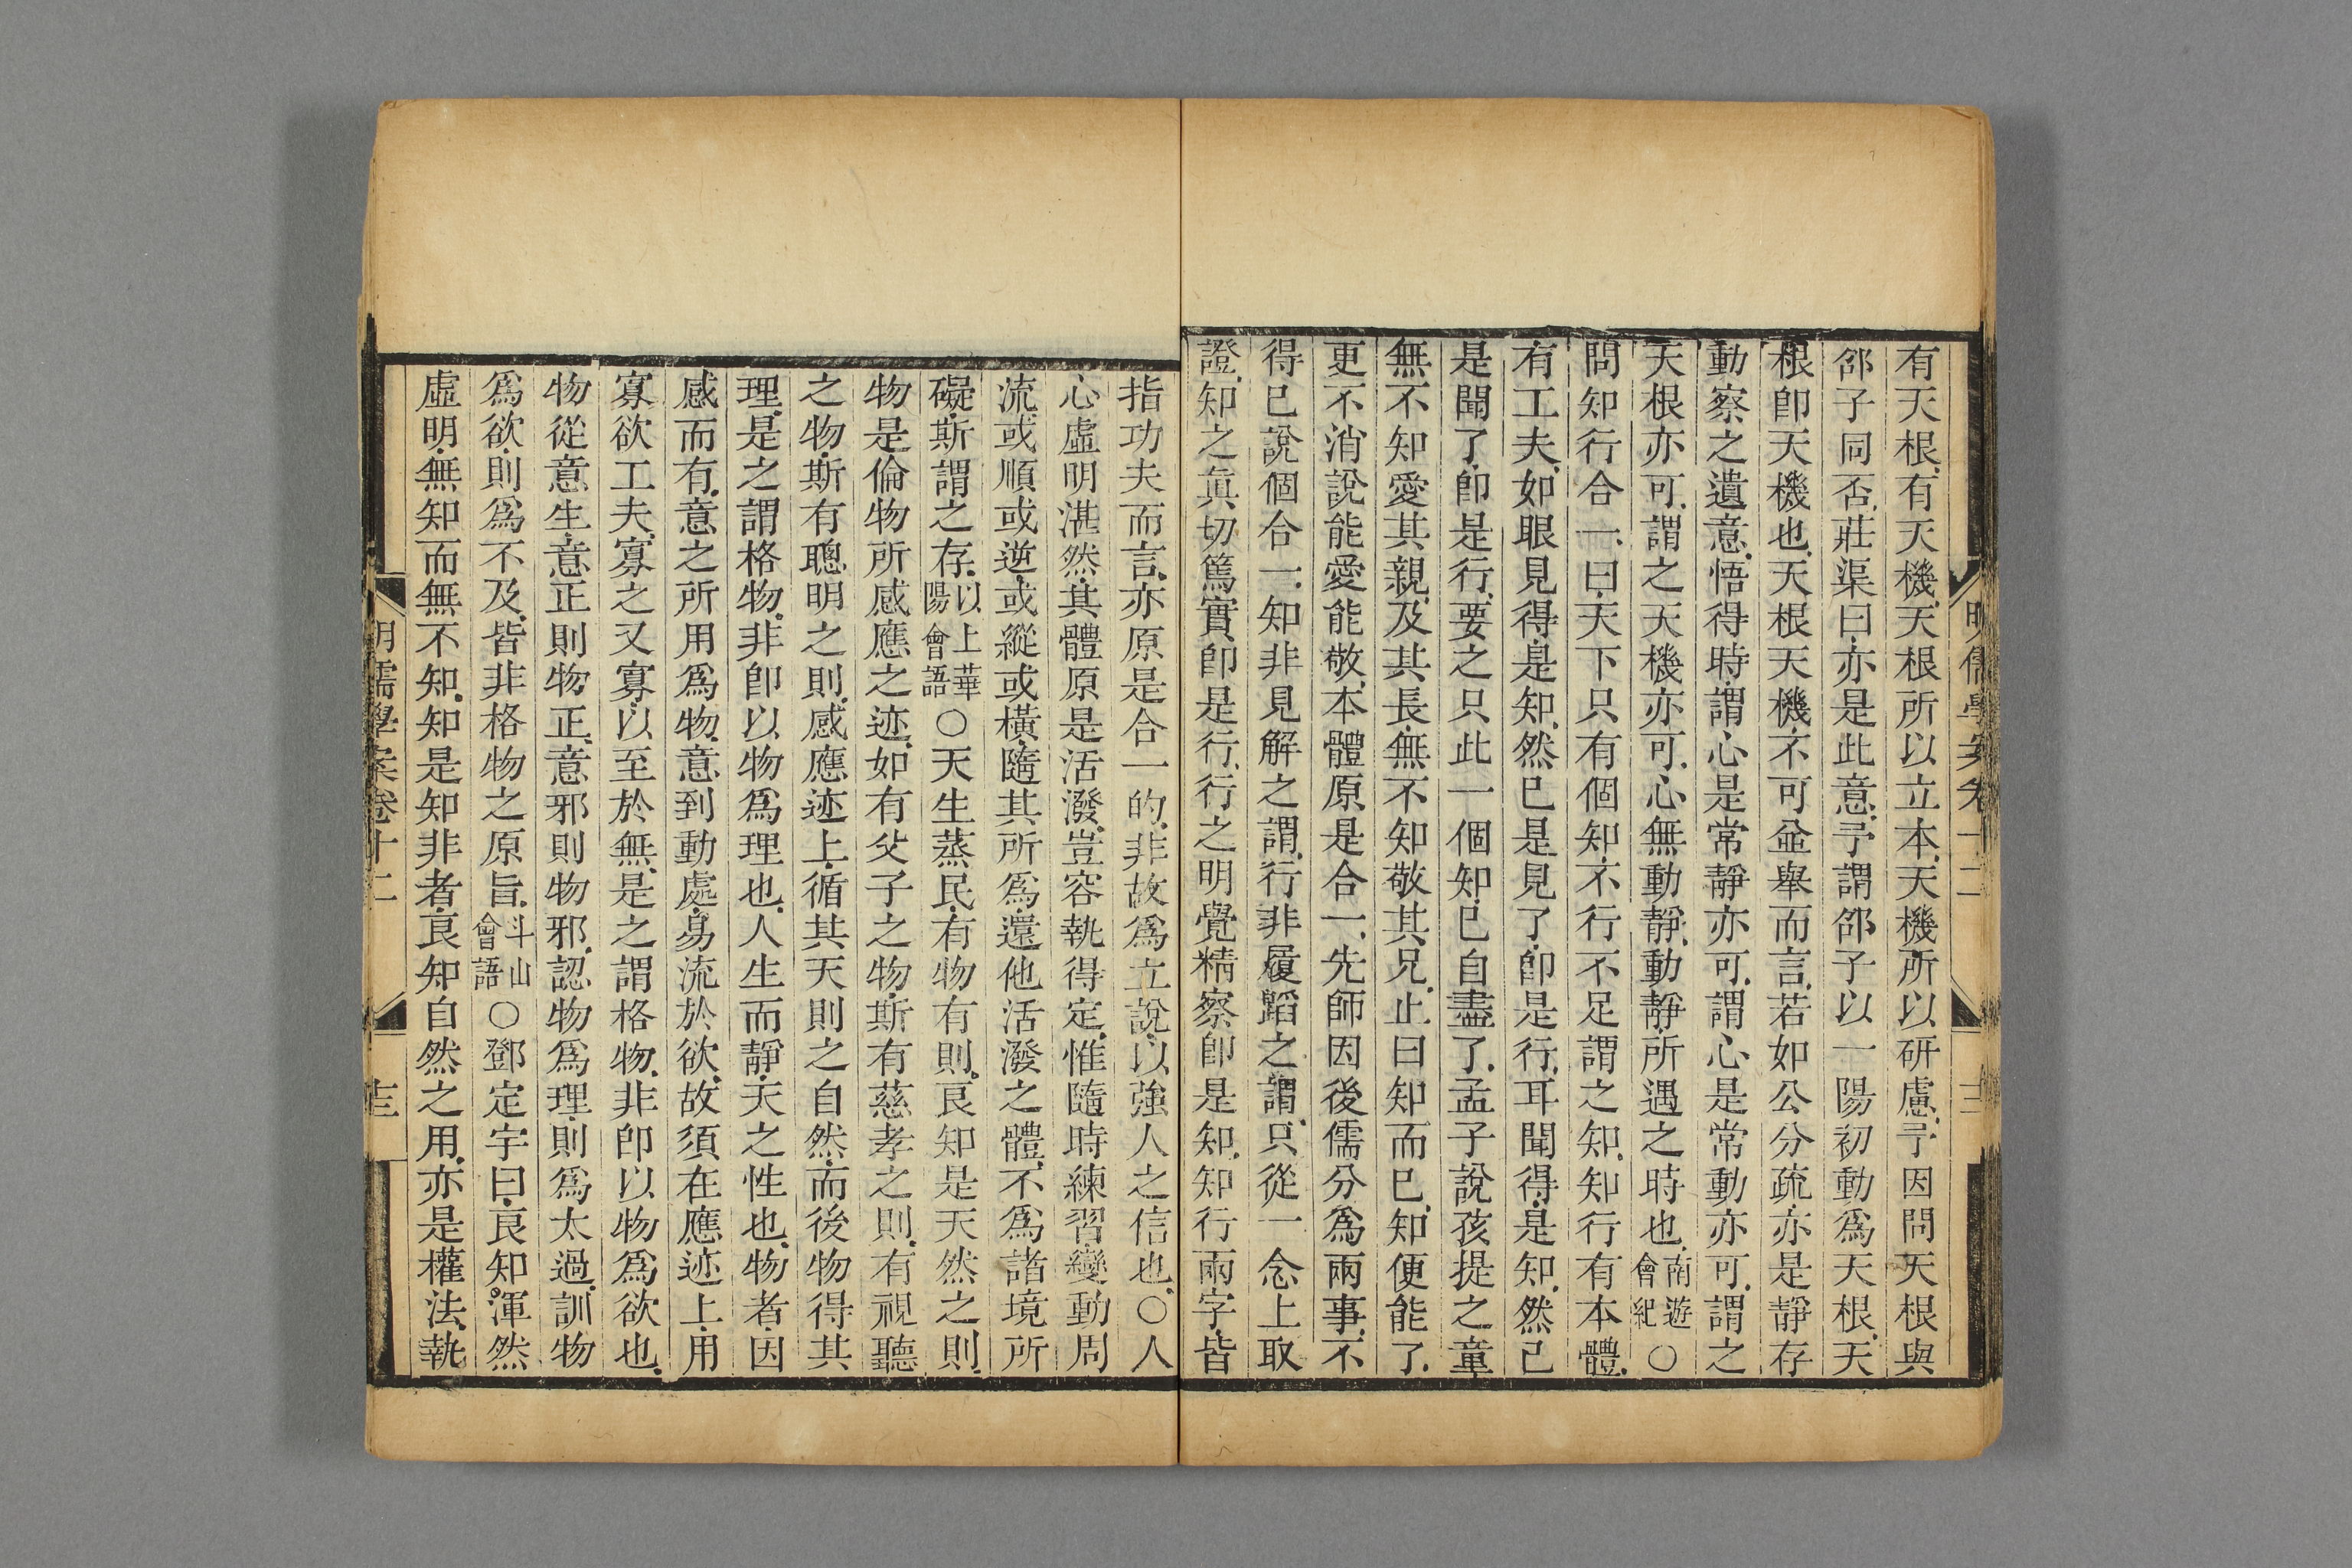 明儒學案卷十二
有天根有天機天根所以立本天機所以研慮予因問天根與
邵子同否莊渠曰亦是此意予謂邵子以一陽初動爲天根天
根卽天機也天根天機不可並舉而言若如公分疏亦是靜存
動察之遺意悟得時謂心是常靜亦可謂心是常動亦可謂之
天根亦可謂之天機亦可心無動靜動靜所遇之時也南遊會紀○
問知行合一曰天下只有個知不行不足謂之知知行有本體
有工夫如眼見得是知然已是見了卽是行耳聞得是知然已
是聞了卽是行要之只此一個知已自盡了孟子說孩提之童
無不知愛其親及其長無不知敬其兄止曰知而已知便能了
更不消說能愛能敬本體原是合一先師因後儒分爲兩事不
得已說個合一知非見解之謂行非履蹈之謂只從一念上取
證知之眞切篤實卽是行行之明覺精察卽是知知行兩字皆
指功夫而言亦原是合一的非故爲立說以強人之信也○人
心虛明湛然其體原是活潑豈容執得定惟隨時練習變動周
流或順或逆或縱或橫隨其所爲還他活潑之體不爲諸境所
礙斯謂之存以上華陽會語○天生蒸民有物有則良知是天然之則
物是倫物所感應之迹如有父子之物斯有慈孝之則有視聽
之物斯有聰明之則感應迹上循其天則之自然而後物得其
理是之謂格物非卽以物爲理也人生而靜天之性也物者因
感而有意之所用爲物意到動處易流於欲故須在應迹上用
寡欲工夫寡之又寡以至於無是之謂格物非卽以物爲欲也
物從意生意正則物正意邪則物邪認物爲理則爲太過訓物
爲欲則爲不及皆非格物之原旨斗山會語○鄧定宇曰良知渾然
虛明無知而無不知知是知非者良知自然之用亦是權法執
明儒學案卷十二